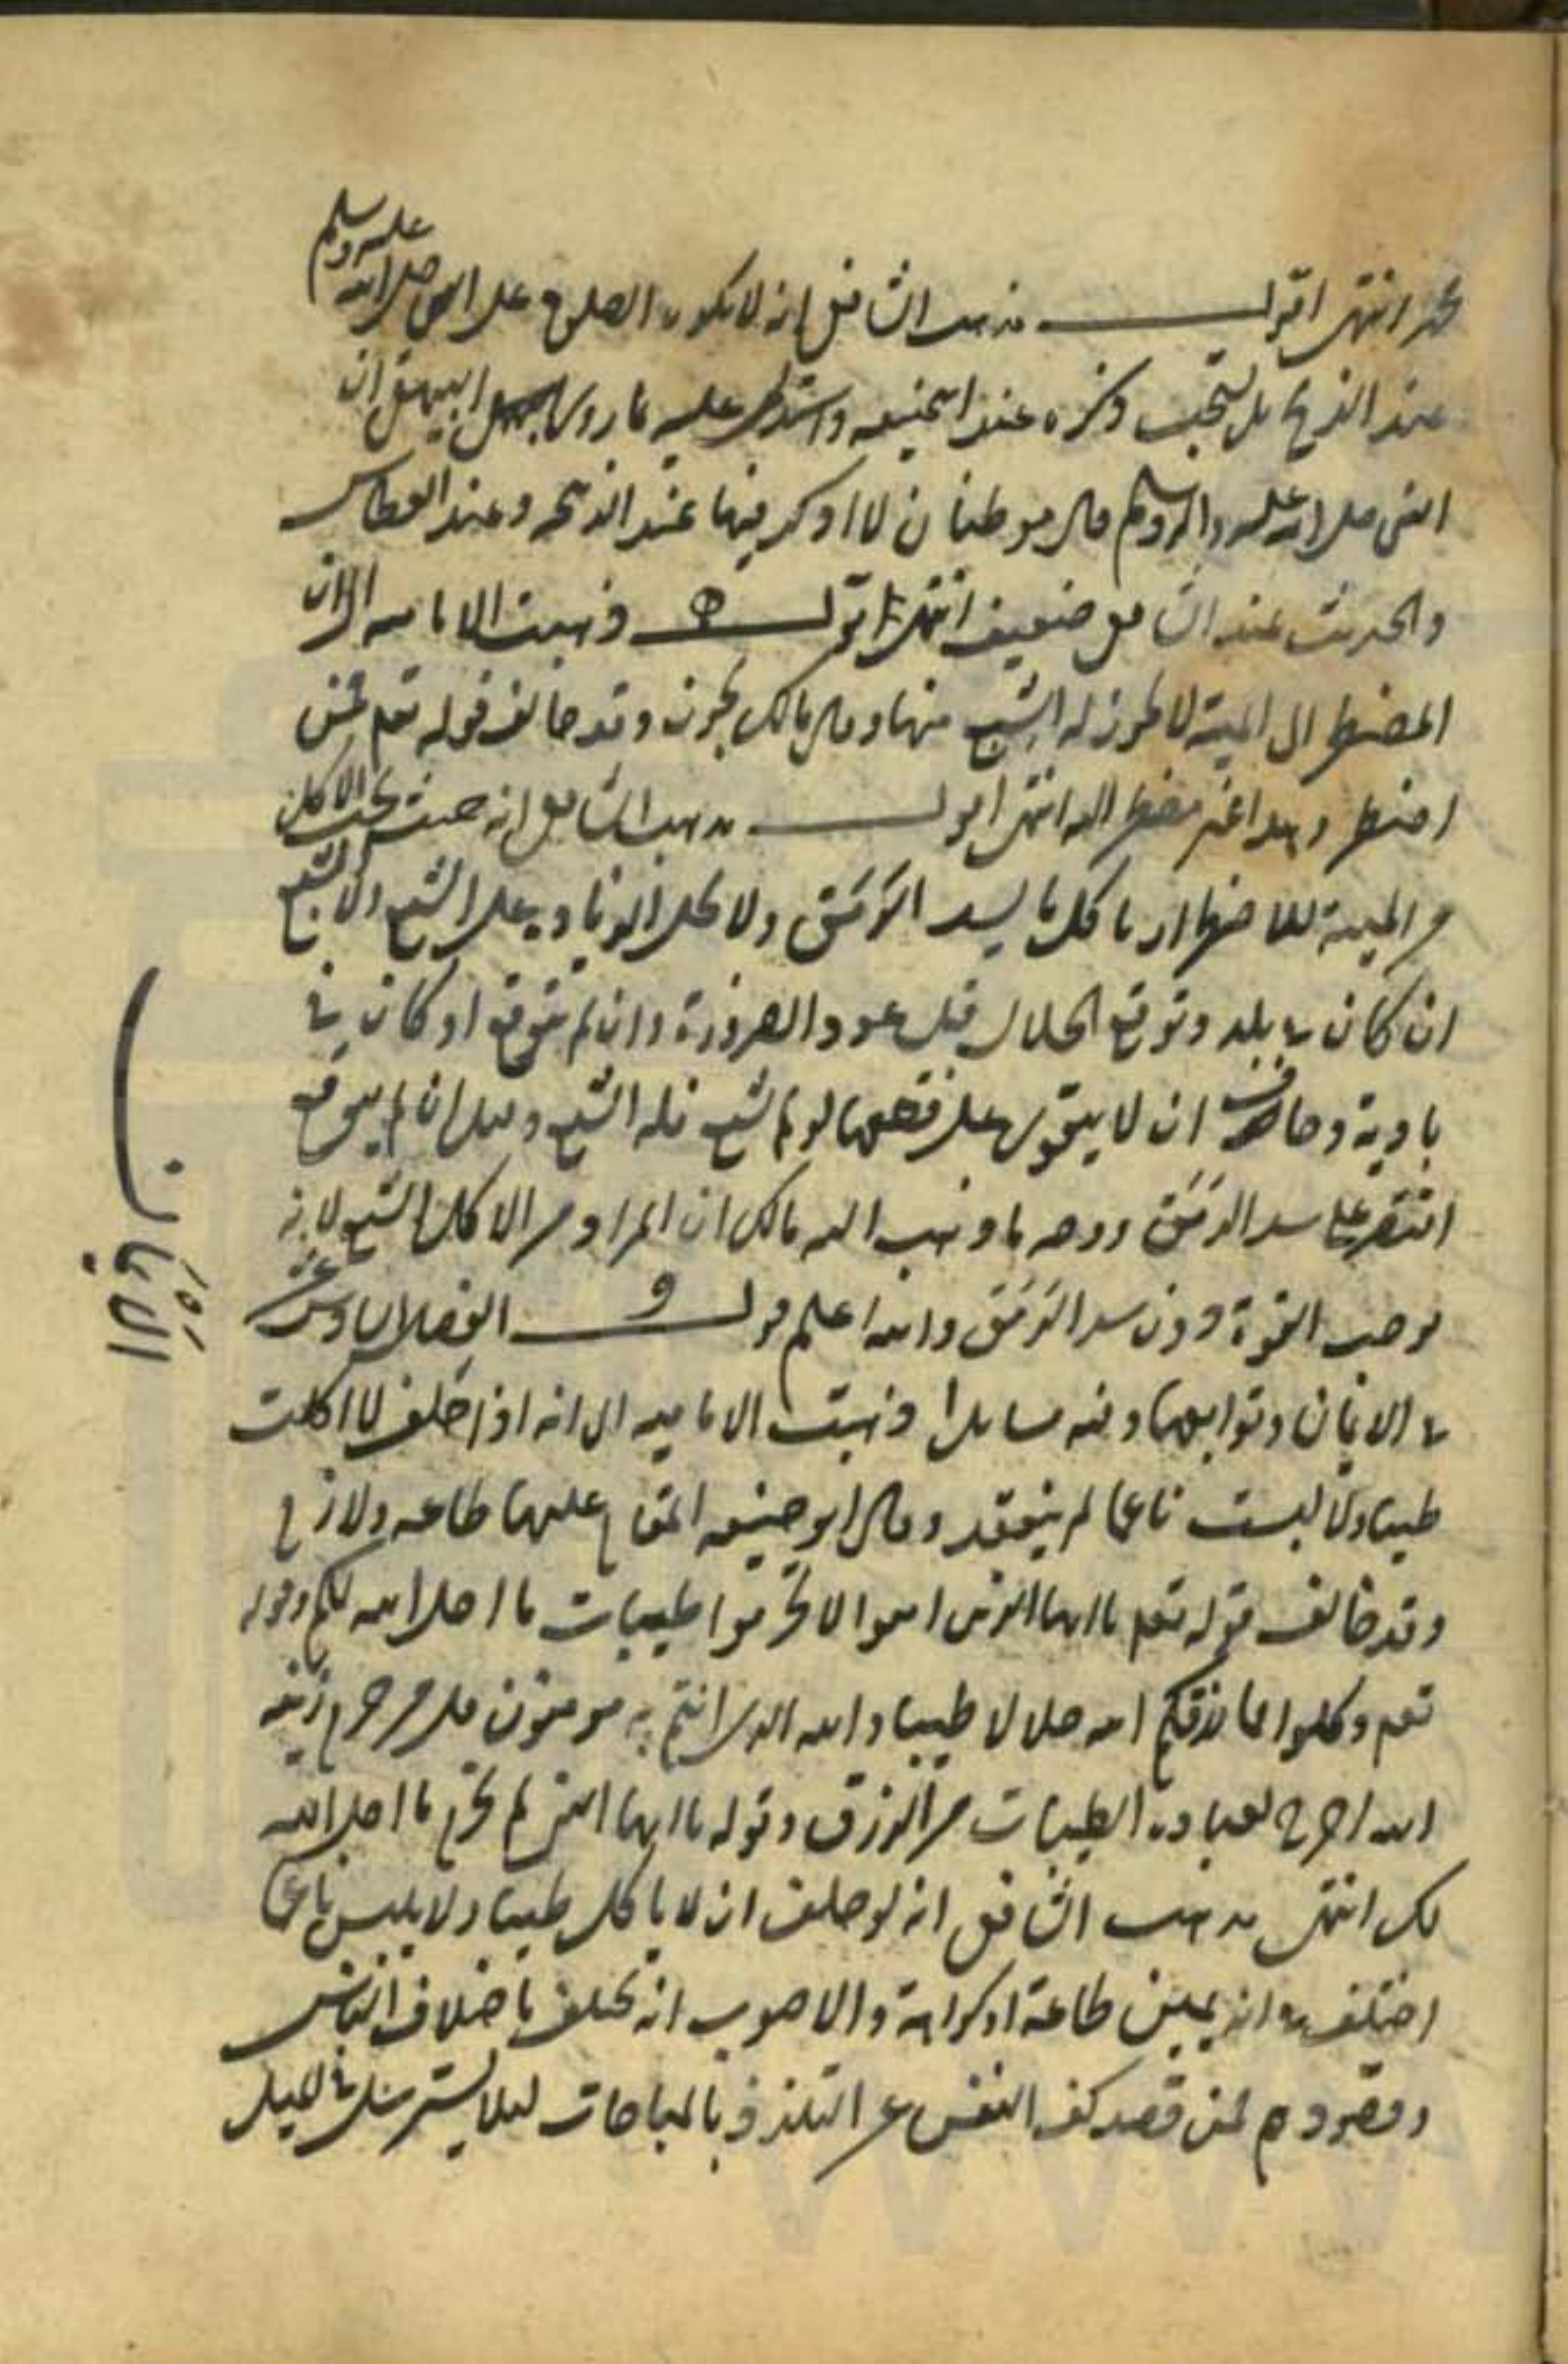 محمد انتهى اقول مذهب الشافعي انه لا يكره الصلوة على النبي صلى الله عليه وسلم
عند الذبح بل يستحب وكره عند ابي حنيفه واستدل عليه بما روى البيهقي ان
النبي صلى الله عليه واله وسلم قال موطنان لا اذكر فيهما عند الذبيحه وعند العطاس
والحديث عند الشافعي ضعيف انتهى اقول ذهبت الاماميه الى ان
المضطر الى الميتة لا يجوز له الشبع منها وقال مالك يجوز وقد خالف قوله تعم فمن
اضطر وهذا غير مضطر اليه انتهى اقول مذهب الشافعي انه حيث يجب الاكل
من الميته للاضطرار ياكل ما يسد الرمق ولا يحل الزيادة على الشبع ولا الشبع
ان كان في بلد وتوقع الحلال قبل عود الضرورة وان لم يتوقع او كان في
بادية وخاف ان لا يتقوى على قطعها لو لم يشبع فله الشبع وقيل ان لم يتوقع
اقتصر على سد الرمق ووجه ما ذهب اليه مالك ان المراد من الاكل الشبع لانه
يوجب القوة دون سد الرمق والله اعلم قوله الفصل السادس عشر
في الايمان وتوابعها وفيه مسايل ا ذهبت الاماميه الى انه اذا حلف لا اكلت
طيبا ولا لبست ناعما لم ينعقد وقال ابو حنيفه المقام عليها طاعه ولازم
وقد خالف قوله تعم يا ايها الذين امنوا لا تحرموا طيبات ما احل الله لكم وقوله
تعم وكلوا مما رزقكم الله حلالا طيبا والله الذي انتم به مومنون قل من حرم زينه
الله اخرج لعباده الطيبات من الرزق وقوله يا ايها النبي لم تحرم ما احل الله
لك انتهى مذهب الشافعي انه لو حلف ان لا ياكل طيبا ولا يلبس ناعما
اختلف في انه يمين طاعة او كراهة والاصوب انه يختلف باختلاف الناس
وقصودهم فمن قصد كف النفس عن التلذذ بالمباحات ليلا يسترسل في الميل